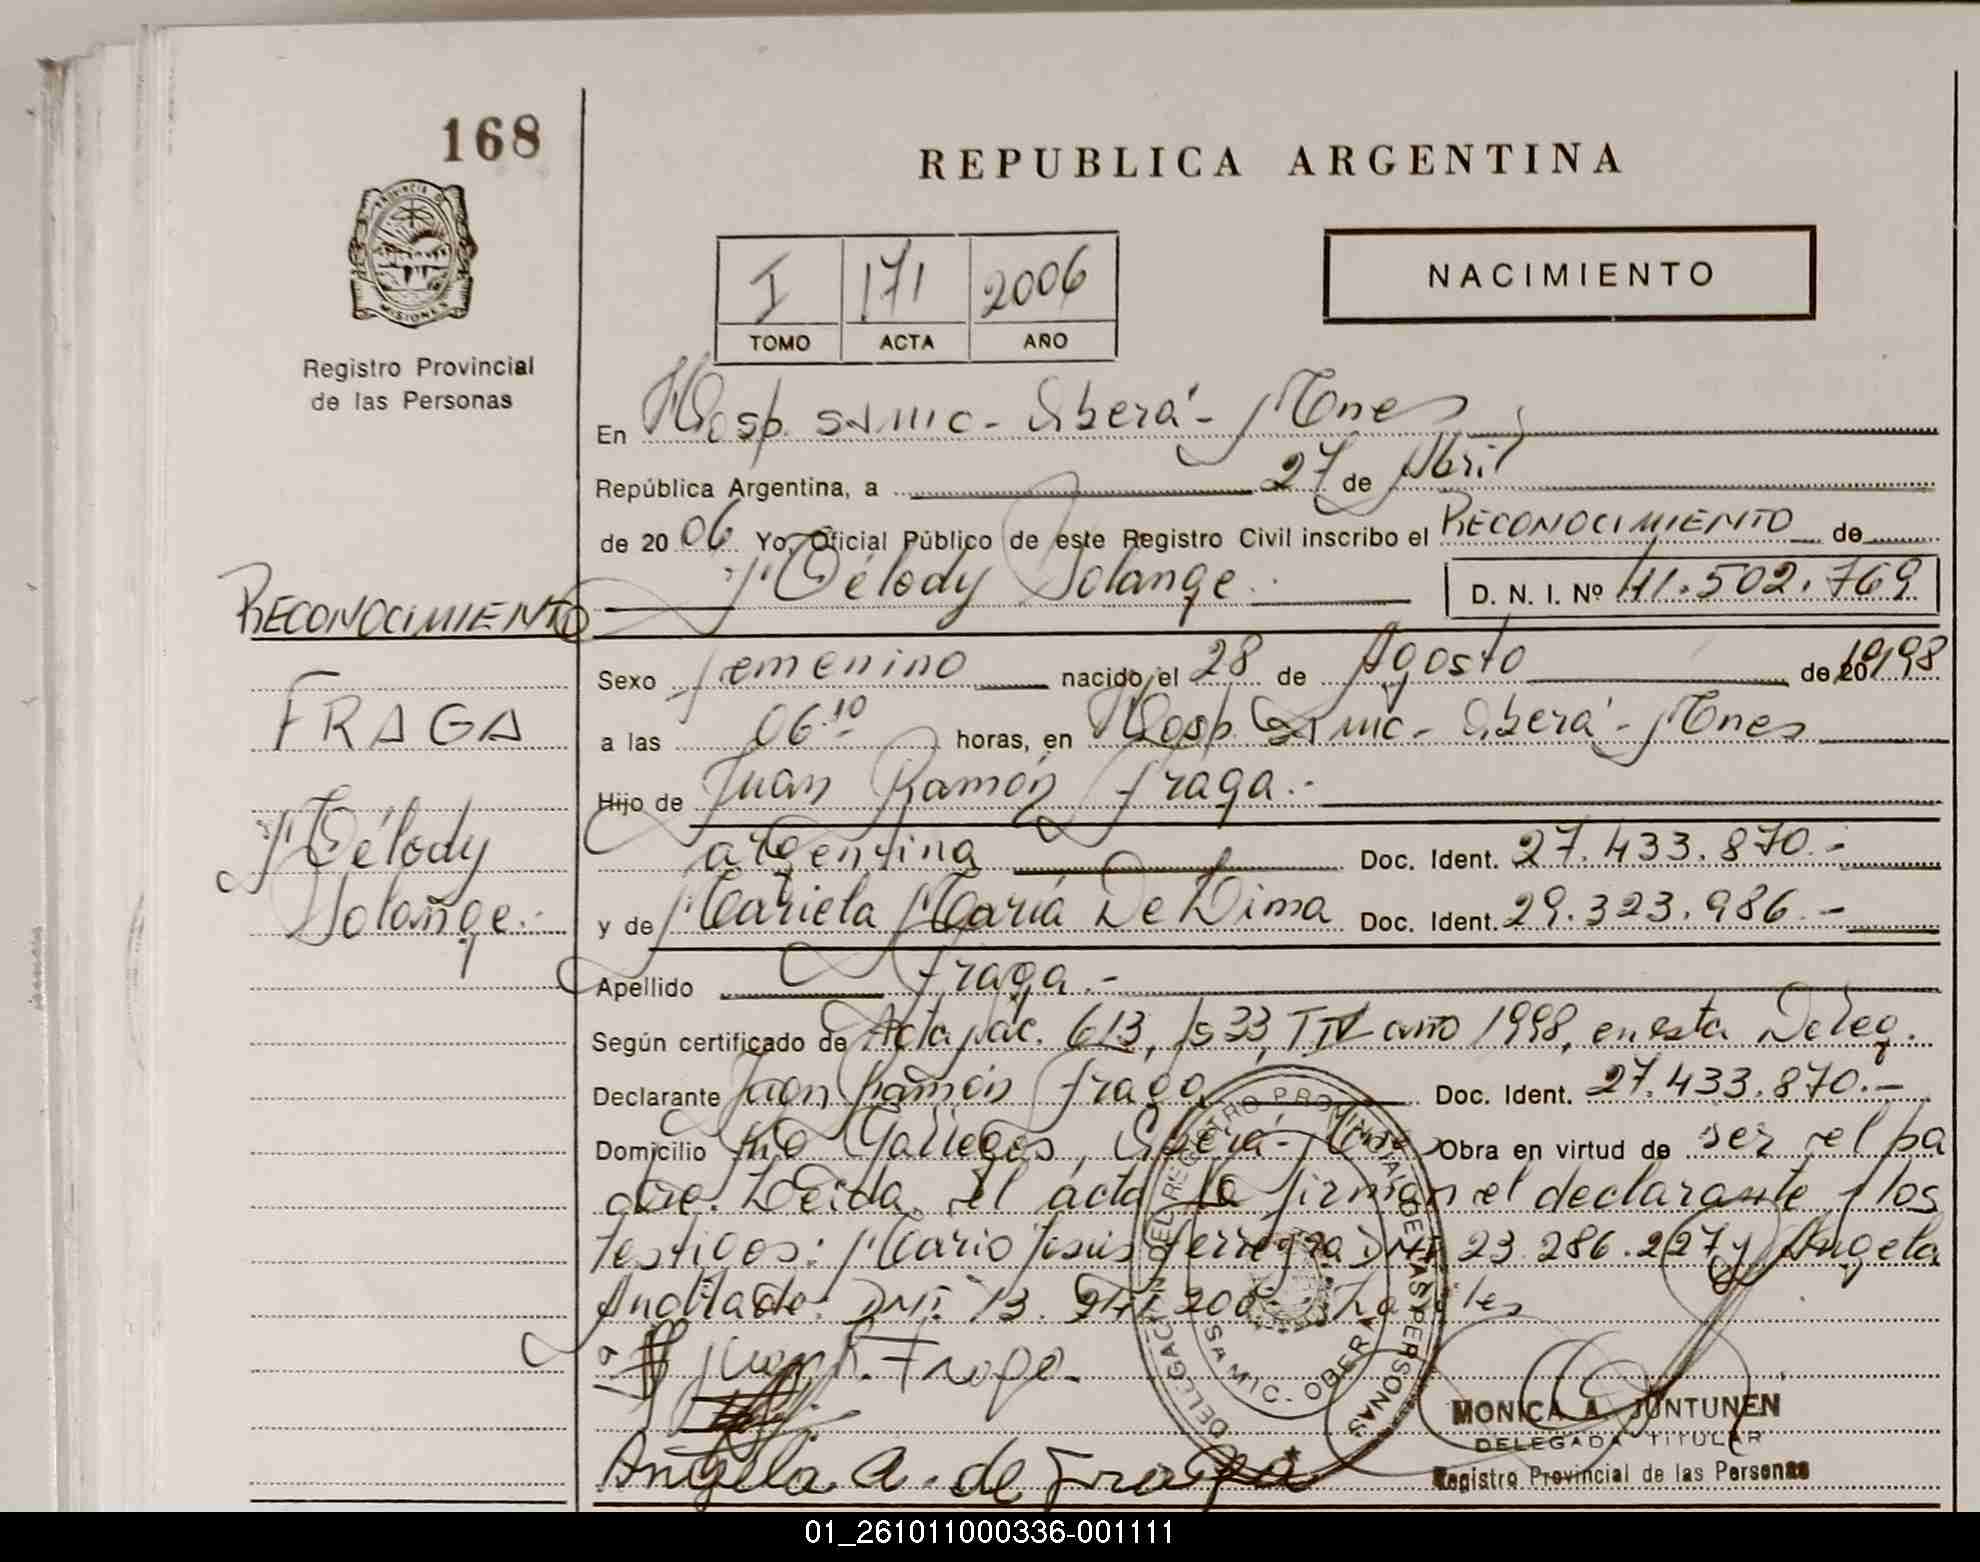 168
REPUBLICA ARGENTINA
PROVINCIA DE MISIONES
Registro Provincial
de las Personas
I 171 2006
TOMO ACTA AÑO
NACIMIENTO
En Hosp. SAMIC - Oberá - Mnes
República Argentina, a 27 de Abril
de 20 06 Yo, Oficial Público de este Registro Civil inscribo el RECONOCIMIENTO de
Mélody Solange.
D. N. I. Nº 41.502.769
RECONOCIMIENTO
FRAGA
Mélody
Solange.-
Sexo femenino nacido el 28 de Agosto de 20 1998
a las 06.10 horas, en Hosp. SAMIC - Oberá - Mnes
Hijo de Juan Ramón Fraga.-
argentina Doc. Ident. 27.433.870.-
y de Mariela María De Lima Doc. Ident. 29.323.986.-
Apellido Fraga.-
Según certificado de Acta Nac. 613, fs 33, T IV año 1998, en esta Deleg.
Declarante Juan Ramón Fraga Doc. Ident. 27.433.870.-
Domicilio Río Gallegos, Oberá - Mnes Obra en virtud de ser el pa
dre. Leída el acta la firman el declarante y los
testigos: Mario Jesús DNI 23.286.227 y Angela
DNI. 13.
Juan R. Fraga
Angela A. de Fraga
DELEGACION DEL REGISTRO PROVINCIAL DE LAS PERSONAS
SAMIC - OBERA
MONICA A. JUNTUNEN
DELEGADA TITULAR
Registro Provincial de las Personas
01_261011000336-001111